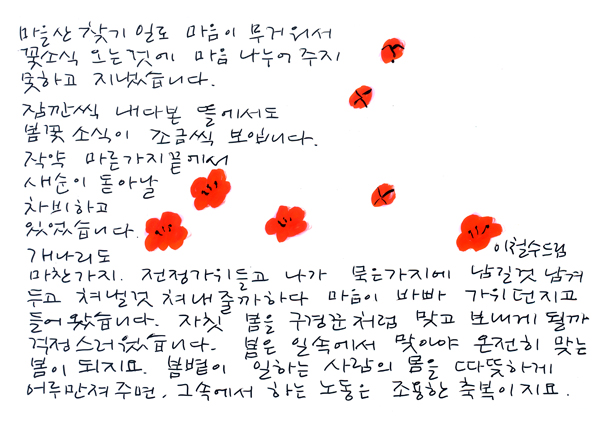 마을산 찾기 일로 마음이 무거워서
꽃소식 오는것에 마음 나누어 주지
못하고 지냈습니다.
잠깐씩 내다본 뜰에서도
봄꽃 소식이 조금씩 보입니다.
작약 마른가지끝에서
새순이 돋아날
차비하고
있었습니다.
개나리도
이철수드림
마찬가지. 전정가위들고 나가 묵은가지에 남길것 남겨
두고 쳐낼것 쳐내줄까하다 마음이 바빠 가위던지고
들어왔습니다. 자칫 봄을 구경꾼처럼 맞고 보내게 될까
걱정스러웠습니다. 봄은 일속에서 맞아야 온전히 맞는
봄이 되지요. 봄볕이 일하는 사람의 몸을 따뜻하게
어루만져주면, 그속에서 하는 노동은 조용한 축복이지요.